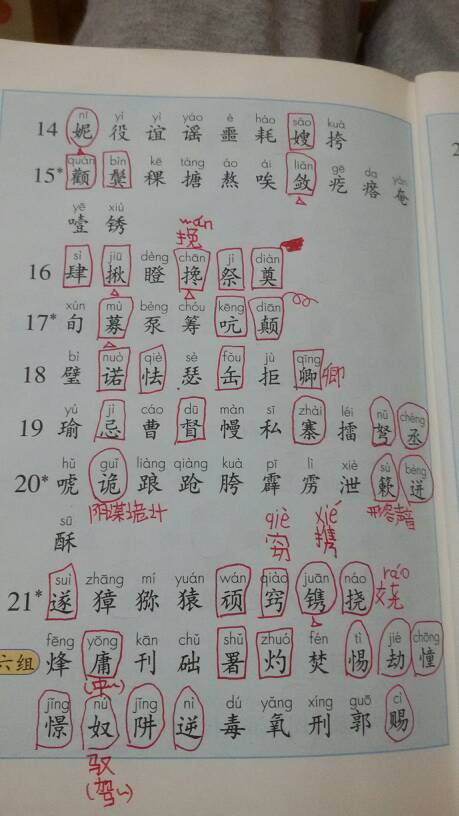 nī yì yì yáo è hào sǎo kuà
14 妮 役 谊 谣 噩 耗 嫂 挎
quán bìn kē táng áo āi liǎn gē da yǎn
15* 颧 鬓 稞 搪 熬 唉 敛 疙 瘩 奄
yē xiù wǎn
噎 锈 挽
sì jiū dèng chān jì diàn
16 肆 揪 瞪 搀 祭 奠
xún mù bèng chóu kēng diān
17* 旬 募 泵 筹 吭 颠
bì nuò qiè sè fǒu jù qīng
18 璧 诺 怯 瑟 缶 拒 卿 卿
yú jì cáo dū màn sī zhài léi nǔ chéng
19 瑜 忌 曹 督 幔 私 寨 擂 弩 丞
hǔ guǐ liàng qiàng kuà pī lì xiè sù bèng
20* 唬 诡 踉 跄 胯 霹 雳 泄 簌 迸
阴谋诡计 形容声音
sū qiè xié
酥 窃 携
suì zhāng mí yuán wán qiào juān náo ráo
21* 遂 獐 猕 猿 顽 窍 镌 挠
fēng yōng kān chǔ shǔ zhuó fén tì jié chōng
六组 烽 庸 刊 础 署 灼 焚 惕 劫 憧
jǐng nú jǐng nì dú yǎng xíng guō cì
憬 奴 阱 逆 毒 氧 刑 郭 赐
驭
(驾~)